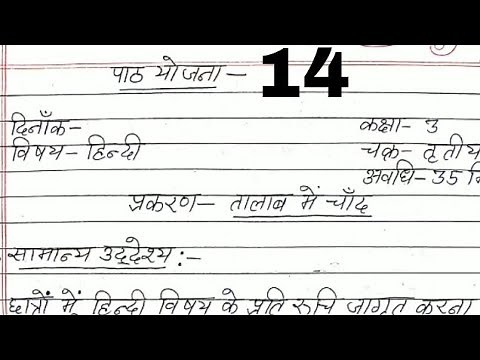 पाठ योजना - 14
दिनाँक- कक्षा- 3
विषय- हिन्दी चक्र- तृतीय
अवधि- 35 मि
प्रकरण- तालाब में चाँद
सामान्य उद्देश्य :-
छात्रों में हिन्दी विषय के प्रति रुचि जागृत करना